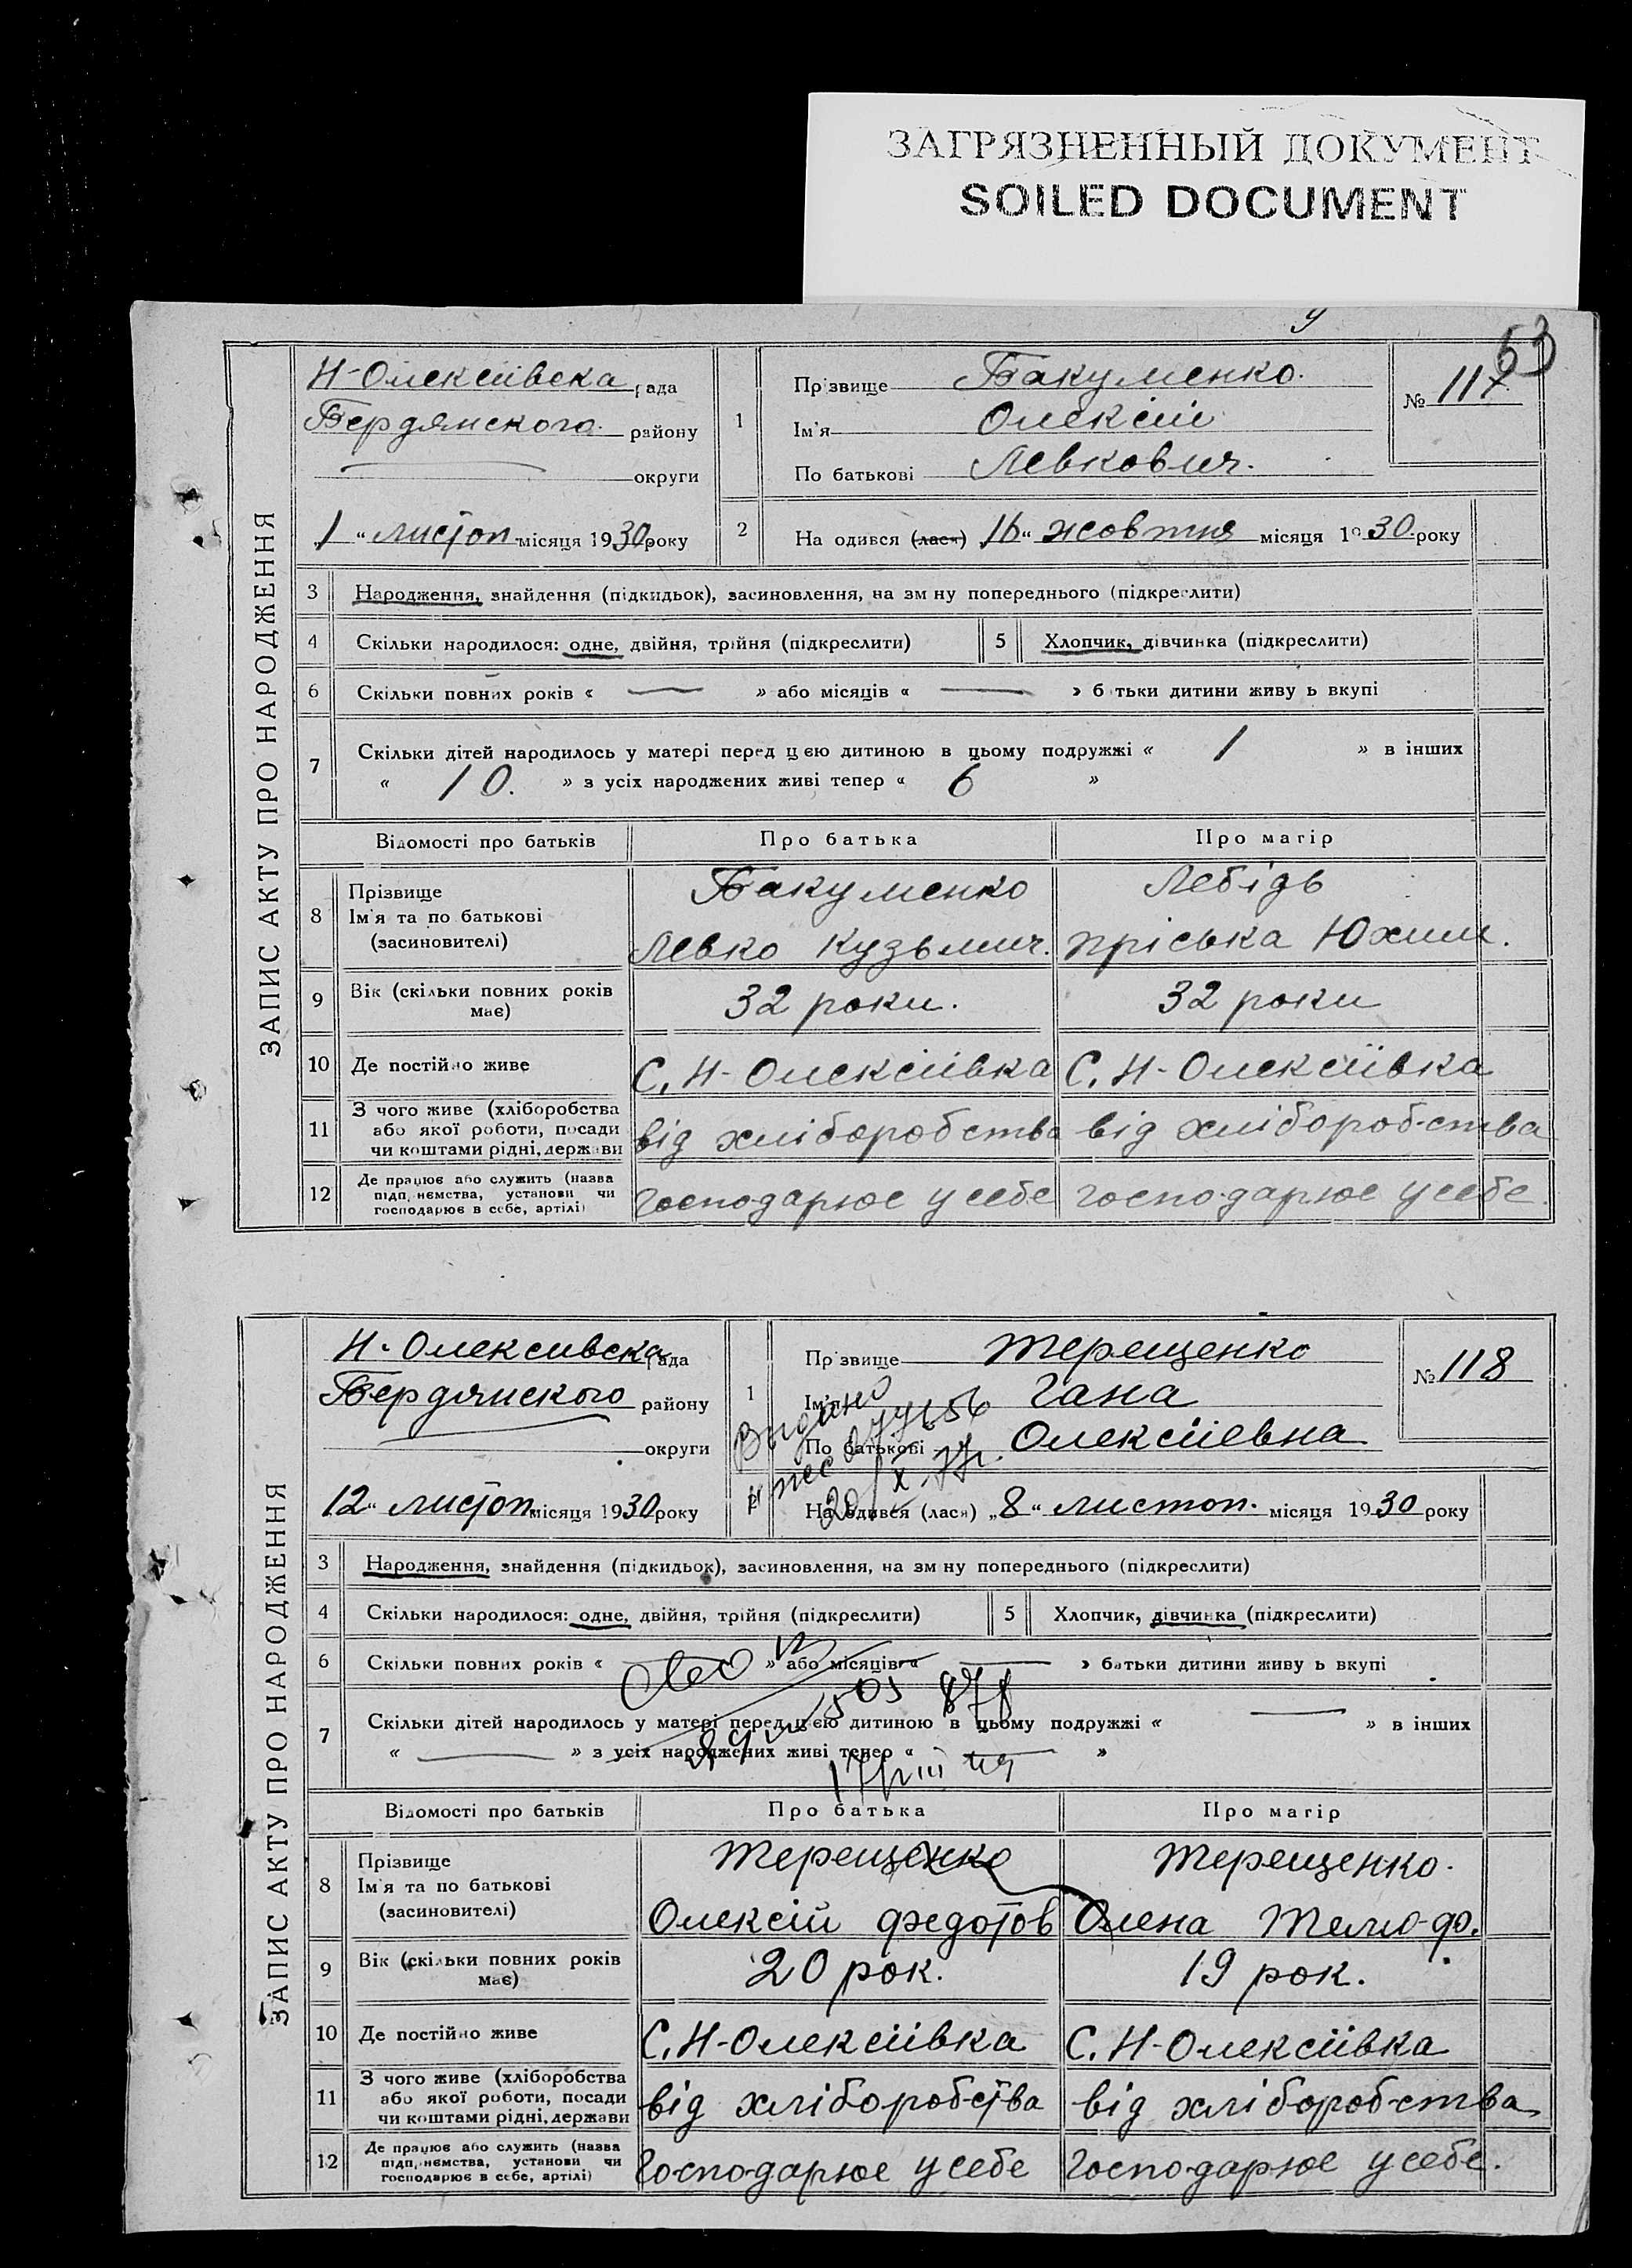 ЗАГРЯЗНЕННЫЙ ДОКУМЕНТ
SOILED DOCUMENT
53
ЗАПИС АКТУ ПРО НАРОДЖЕННЯ
Н-Олексіівска рада
Бердянского району
округи
1 " листоп місяця 1930 року
1
Прізвище Бакуменко.
Ім'я Олексій
По батькові Левкович.
№ 117
2
На одився (лася) 16 " жовтня місяця 1930 року
3 Народження, знайдення (підкидьок), засиновлення, на зм ну попереднього (підкреслити)
4 Скільки народилося: одне, двійня, трійня (підкреслити) 5 Хлопчик, дівчинка (підкреслити)
6 Скільки повних років « — » або місяців « — » б тьки дитини живу ь вкупі
7 Скільки дітей народилось у матері перед цею дитиною в цьому подружжі « 1 » в інших
« 10. » з усіх народжених живі тепер « 6 »
Відомості про батьків Про батька Про матір
8 Прізвище
Ім'я та по батькові
(засиновителі)
Бакуменко
Левко Кузьмич.
Лебідь
Пріська Юхим.
9 Вік (скільки повних років має) 32 роки. 32 роки
10 Де постійно живе С. Н-Олексіівка С. Н-Олексіівка
11 З чого живе (хліборобства
або якої роботи, посади
чи коштами рідні, держави
від хліборобства від хліборобства
12 Де працює або служить (назва
підп, нємства, установи чи
господарює в себе, артілі)
Господарює у себе господарює у себе.
ЗАПИС АКТУ ПРО НАРОДЖЕННЯ
Н-Олексивска рада
Бердянского району
округи
12 " листоп місяця 1930 року
1
Пр звище Терещенко
Ім'я Гана
По батькові Олексіевна
№ 118
Видано
20/X-77г.
2
На одився (лася) „8" листоп. місяця 1930 року
3 Народження, знайдення (підкидьок), засиновлення, на зм ну попереднього (підкреслити)
4 Скільки народилося: одне, двійня, трійня (підкреслити) 5 Хлопчик, дівчинка (підкреслити)
6 Скільки повних років « — » або місяців « — » батьки дитини живу ь вкупі
7 Скільки дітей народилось у матері перед цею дитиною в цьому подружжі « — » в інших
« — » з усіх народжених живі тепер « — »
Відомості про батьків Про батька Про матір
8 Прізвище
Ім'я та по батькові
(засиновителі)
Терещенко
Олексій Федотов
Терещенко.
Олена Тимо-ф.
9 Вік (скільки повних років має) 20 рок. 19 рок.
10 Де постійно живе С. Н-Олексіівка С. Н-Олексіівка
11 З чого живе (хліборобства
або якої роботи, посади
чи коштами рідні, держави
від хліборобства від хліборобства
12 Де працює або служить (назва
підп, нємства, установи чи
господарює в себе, артілі)
Господарює у себе Господарює у себе.